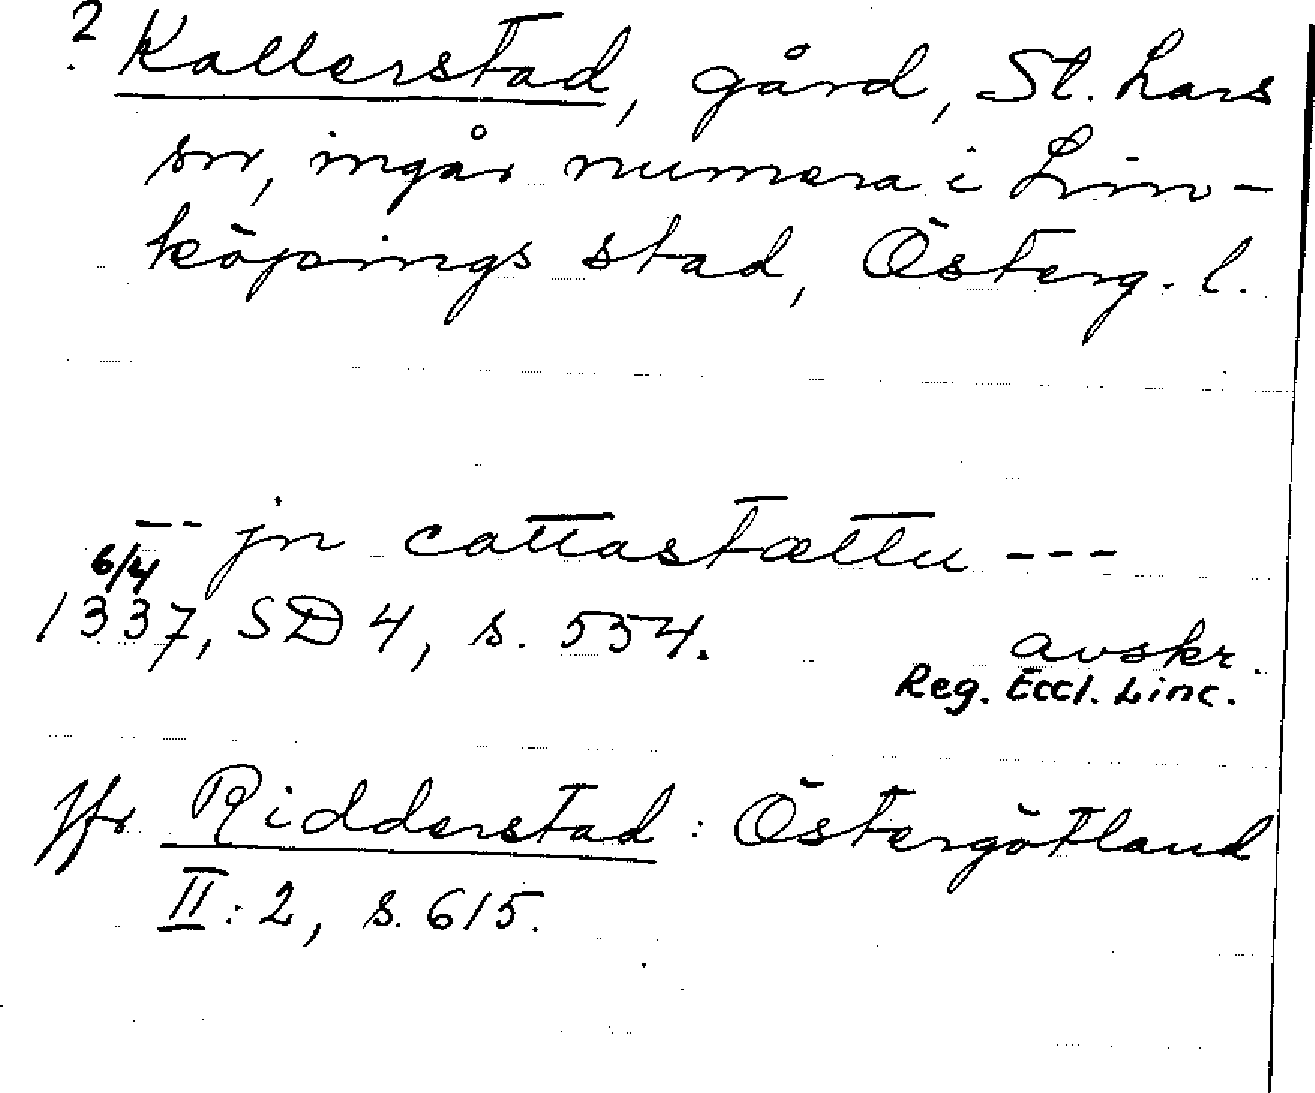 ? Kallerstad, gård, St. Lars
sn, ingår numera i Lin-
köpings stad, Österg. l.
-- jn cattastættu ---
6/4
1337, SD 4, s. 554.
avskr.
Reg. Eccl. Linc.
Jfr Ridderstad: Östergötland
II: 2, s. 615.